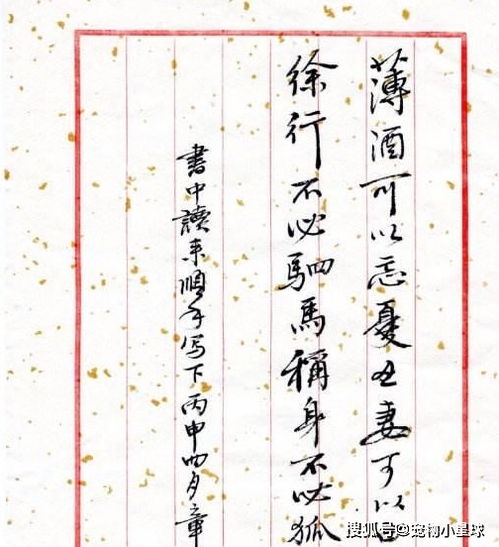 薄酒可以忘憂丑妻可以
徐行不必駟馬稱身不必狐
書中讀来順手写下丙申四月章
搜狐号@宠物小星球